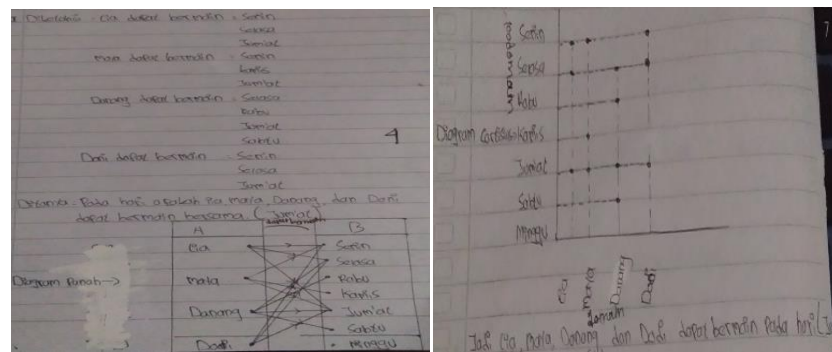 Diketahui : Cia dapat bermain : Senin
Selasa
Jum'at
Maya dapat bermain : Senin
Kamis
Jum'at
Danang dapat bermain : Selasa
Rabu
Jum'at
Sabtu
4
Dodi dapat bermain : Senin
Selasa
Jum'at
Ditanya : Pada hari apakah Cia, Maya, Danang, dan Dodi
dapat bermain bersama (Jum'at
A B
Cia Senin
Selasa
Maya Rabu
Kamis
Diagram Panah→
Danang Jum'at
Sabtu
Dodi Minggu
Senin
Selasa
Rabu
Diagram Cartesius Kamis
Jum'at
Sabtu
Minggu
Cia Maya Danang Dodi
Jadi Cia, Maya, Danang dan Dodi dapat bermain Pada hari